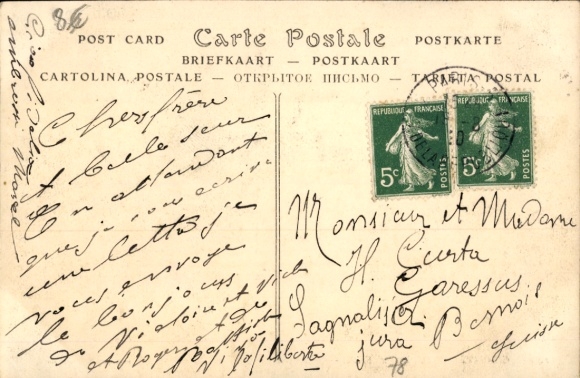 86
POST CARD Carte Postale POSTKARTE
BRIEFKAART — POSTKAART
CARTOLINA POSTALE — ОТКРЫТОЕ ПИСЬМО — TARJETA POSTAL
REPUBLIQUE FRANÇAISE
5c
POSTES
REPUBLIQUE FRANÇAISE
5c
POSTES
PARIS
Chers frère
et belle seur
En attendant
que je vous écrive
une lettre je
vous envoye
le bonjour
de Victoire et
et Roger et de
Monsieur et Madame
H. Curta
Lagnalier.
jura Bernois
Suisse
78
Marcel